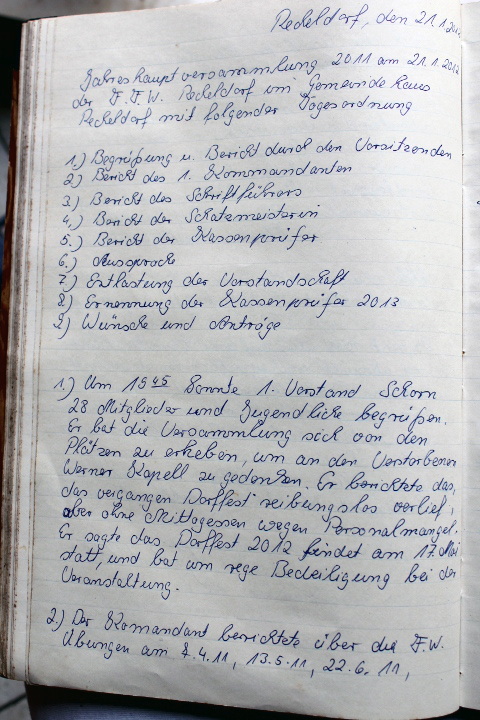 Reckeldorf, den 21.1.2012
Jahreshauptversammlung 2011 am 21.1.2012
der F.F.W. Reckeldorf im Gemeindehaus
Reckeldorf mit folgender Tagesordnung
1.) Begrüßung u. Bericht durch den Vorsitzenden
2.) Bericht des 1. Kommandanten
3.) Bericht des Schriftführers
4.) Bericht der Schatzmeisterin
5.) Bericht der Kassenprüfer
6.) Aussprache
7.) Entlastung der Vorstandschaft
8.) Ernennung der Kassenprüfer 2013
9.) Wünsche und Anträge
1.) Um 19 45 konnte 1. Vorstand Schorn
28 Mitglieder und Jugendliche begrüßen.
Er bat die Versammlung sich von den
Plätzen zu erheben, um an den Verstorbenen
Werner Kapell zu gedenken. Er berichtete das,
das vergangen Dorffest reibungslos verlief,
aber ohne Mittagessen wegen Personalmangel.
Er sagte das Dorffest 2012 findet am 17. Mai
statt, und bat um rege Bedeiligung bei der
Veranstaltung.
2.) Der Komandant berichtete über die F.W.
Übungen am 8.4.11, 13.5.11, 22.6.11,